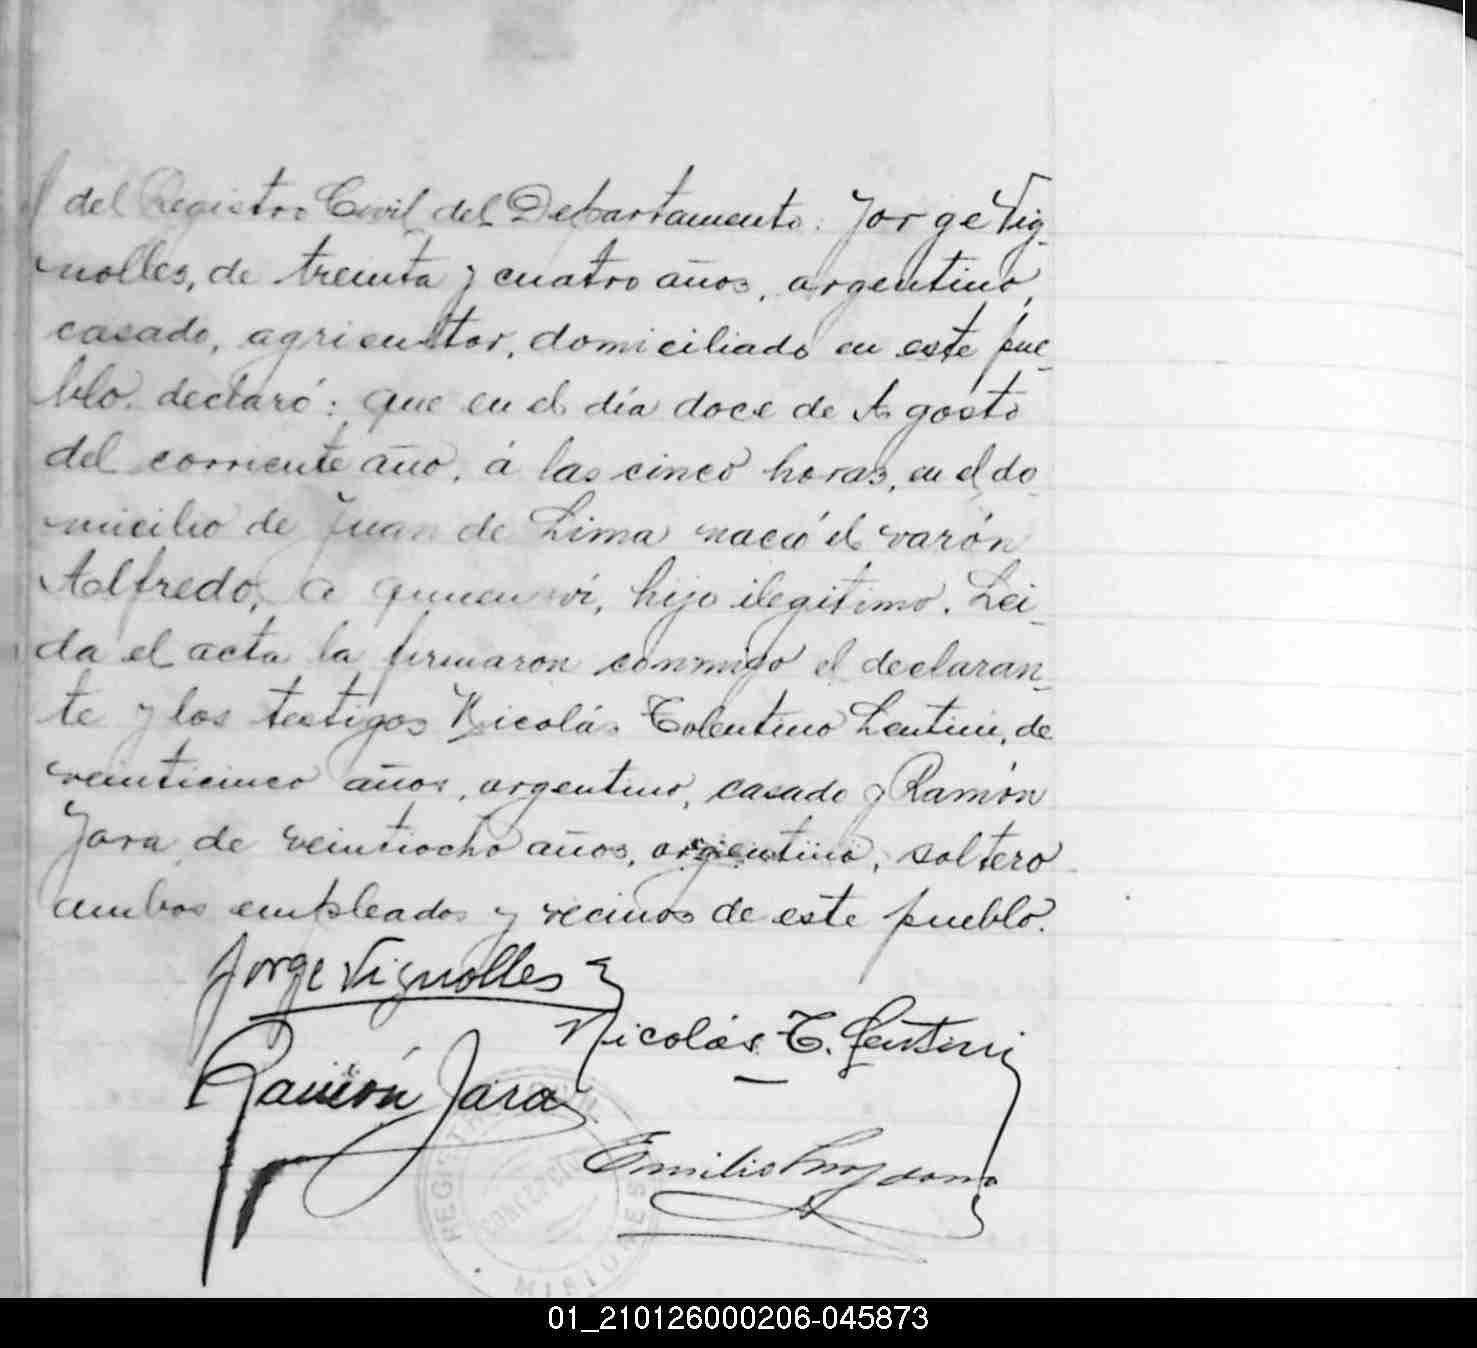 del Registro Civil del Departamento: Jorge Vig-
nolles, de treinta y cuatro años, argentino,
casado, agricultor, domiciliado en este pue-
blo. declaró: que en el día doce de Agosto
del corriente año, á las cinco horas, en el do-
micilio de Juan de Lima nació el varón
Alfredo, a quien ví, hijo ilegítimo. Lei-
da el acta la firmaron conmigo el declaran-
te y los testigos Nicolás Tolentino Lentini, de
veinticinco años, argentino, casado y Ramón
Jara de veintiocho años, argentino, soltero
ambos empleados y vecinos de este pueblo.
Jorge Vignolles
Nicolás T. Lentini
Ramón Jara
Emilio
MISIONES
01_210126000206-045873